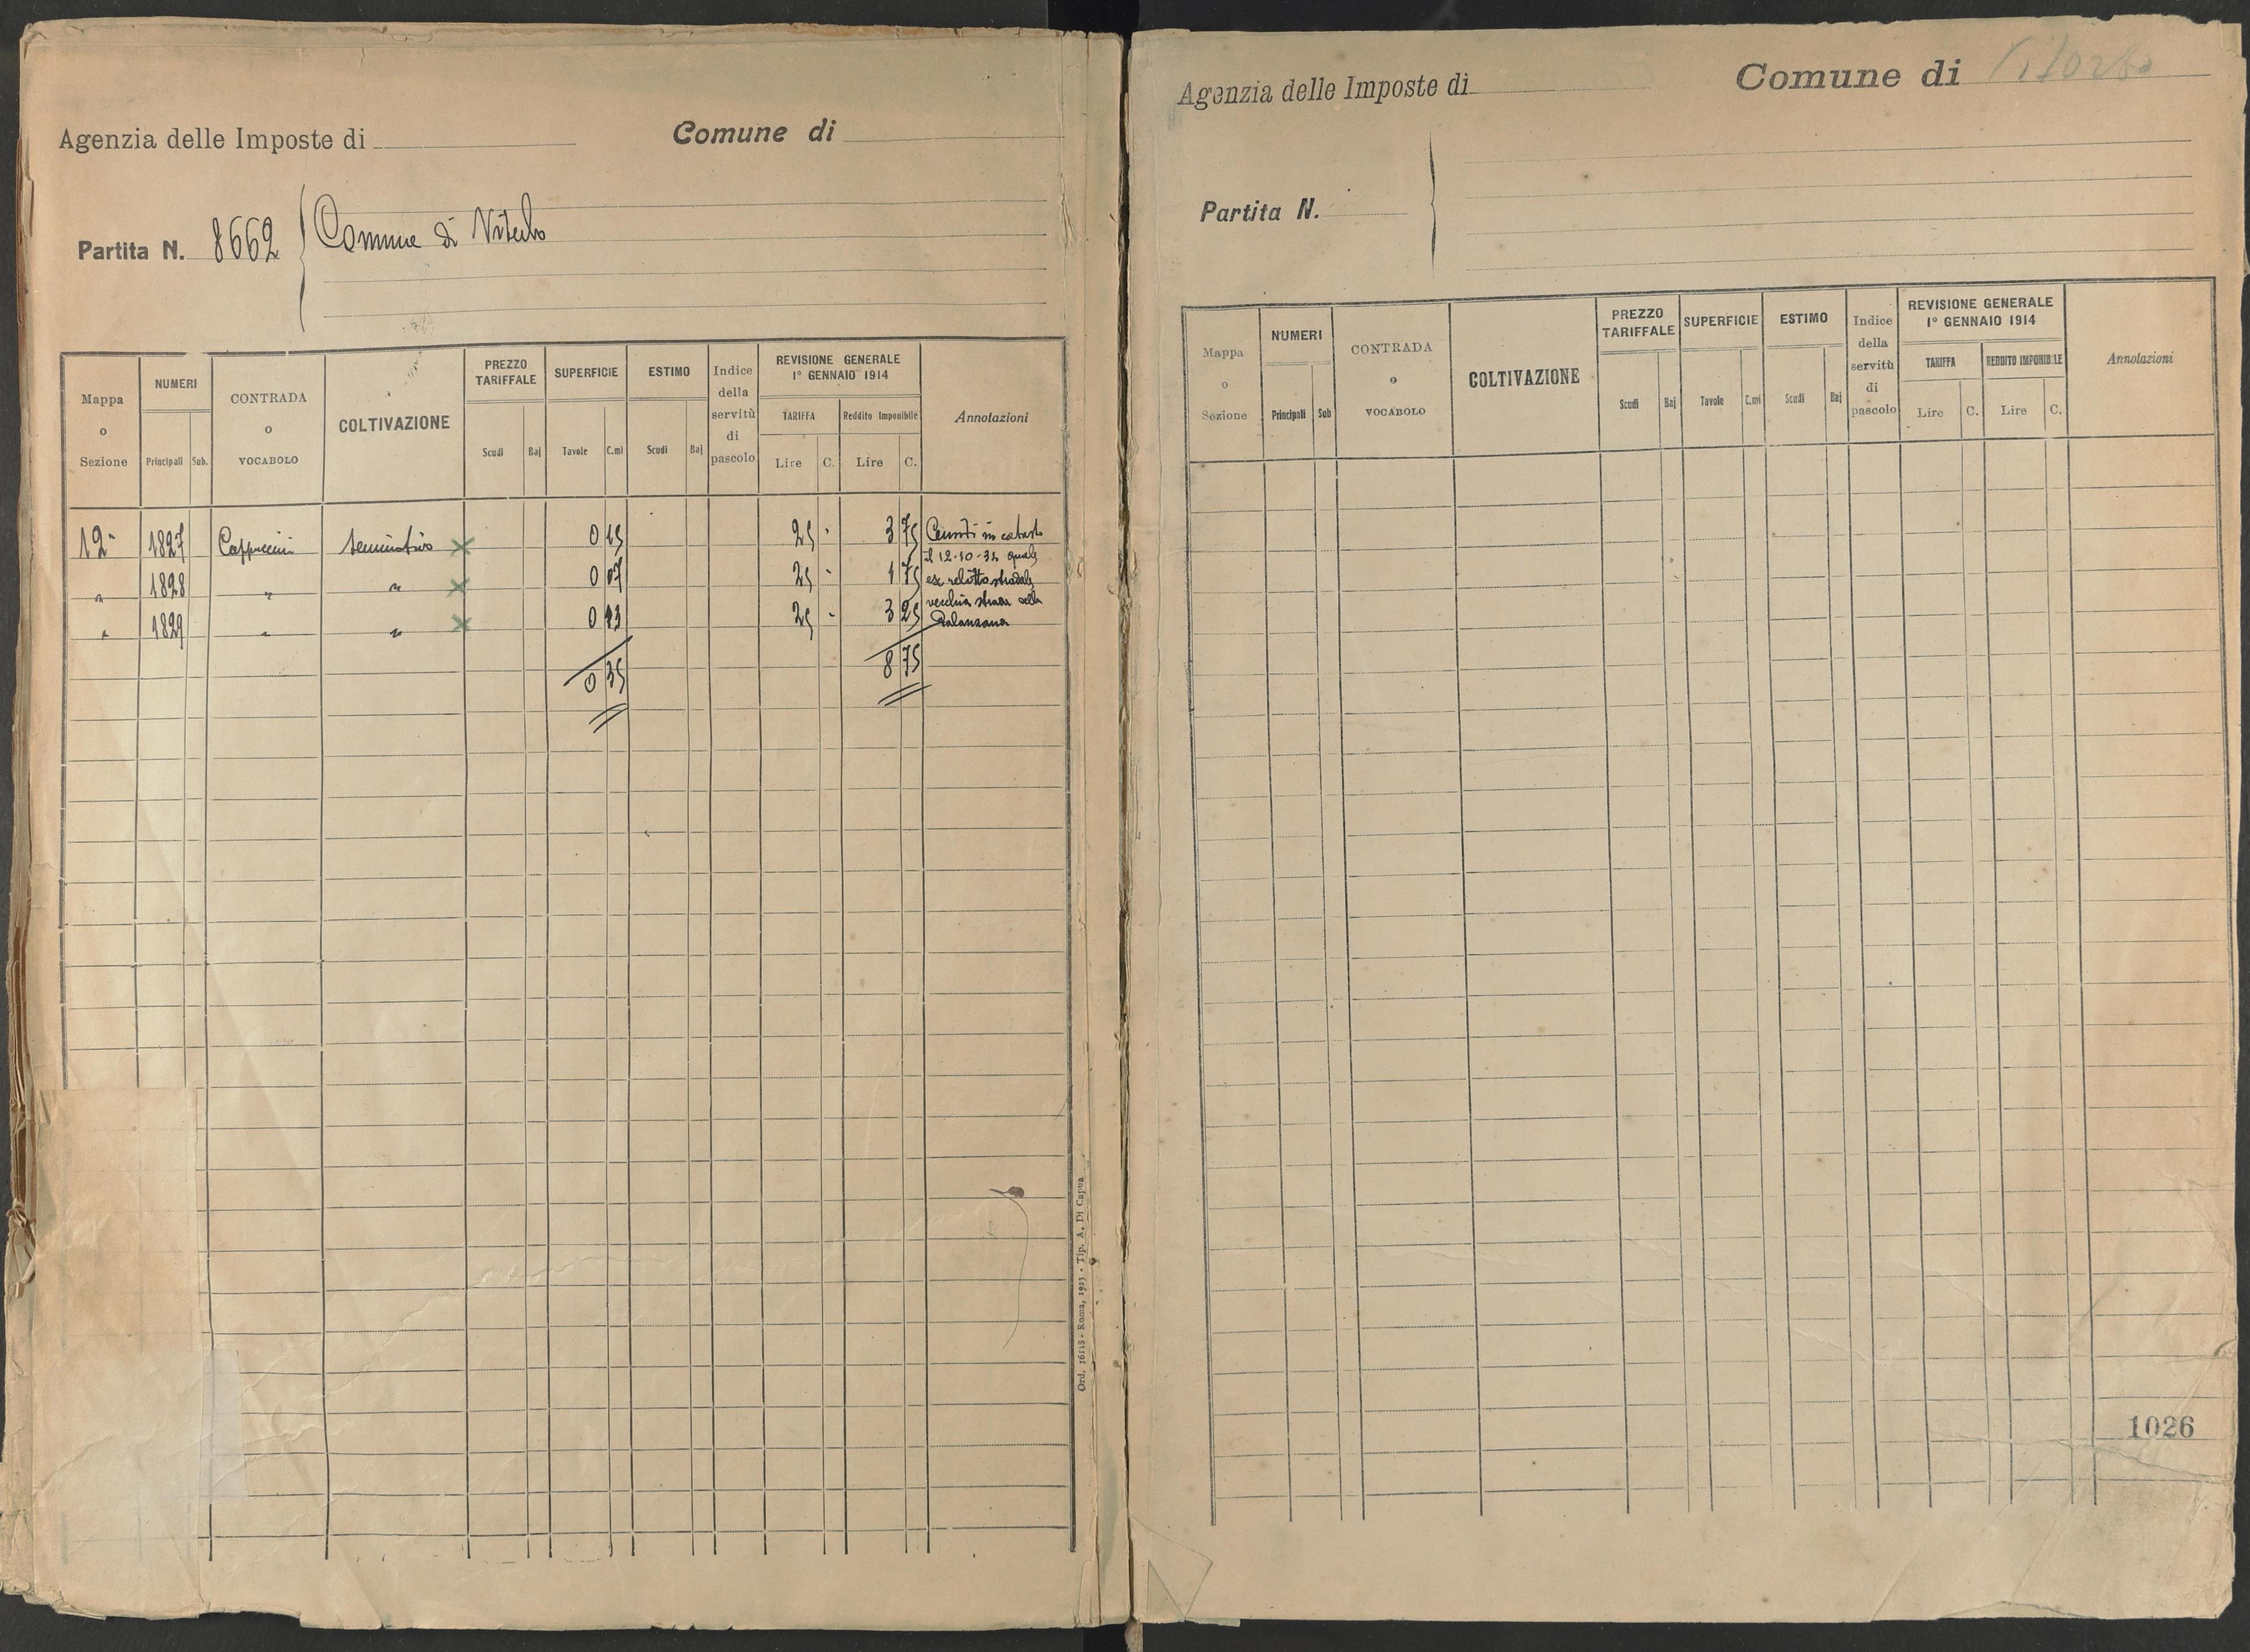 Agenzia delle Imposte di
Comune di
Partita N. 8662
Comune di Viterbo
Mappa o Sezione
NUMERI
Principali Sub.
CONTRADA o VOCABOLO
COLTIVAZIONE
PREZZO TARIFFALE
Scudi Baj
SUPERFICIE
Tavole C.mi
ESTIMO
Scudi Baj
Indice della servitù di pascolo
REVISIONE GENERALE
1º GENNAIO 1914
TARIFFA
Lire C.
Reddito Imponibile
Lire C.
Annotazioni
12ª 1827 Cappuccini seminativo x 0 15 25 - 3 75 Censiti in catasto
il 12-10-32 quale
" 1828 " " x 0 07 25 - 1 75 ex relitto stradale
vecchia strada della
" 1829 " " x 0 13 25 - 3 25 Palanzana
0 35 8 75
Ord. 16218 - Roma, 1923 - Tip. A. Di Capua
Agenzia delle Imposte di
Comune di Viterbo
Partita N.
Mappa o Sezione
NUMERI
Principali Sub
CONTRADA o VOCABOLO
COLTIVAZIONE
PREZZO TARIFFALE
Scudi Baj
SUPERFICIE
Tavole C.mi
ESTIMO
Scudi Baj
Indice della servitù di pascolo
REVISIONE GENERALE
1º GENNAIO 1914
TARIFFA
Lire C.
REDDITO IMPONIBILE
Lire C.
Annotazioni
1026